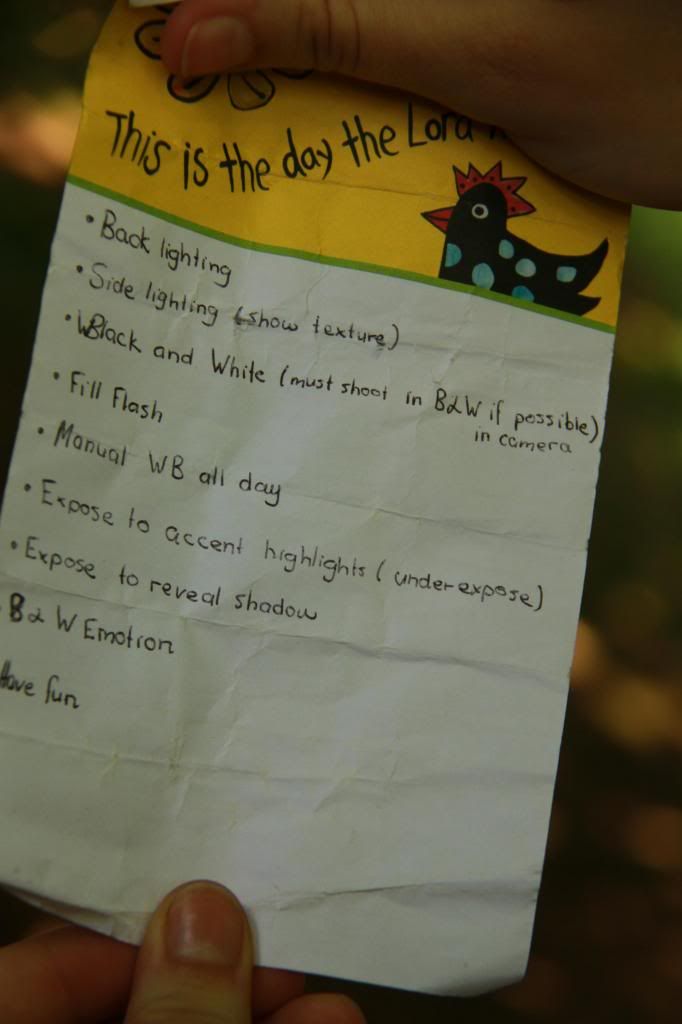 This is the day the Lord
• Back lighting
• Side lighting (show texture)
• Black and White (must shoot in B&W if possible)
in camera
• Fill Flash
• Manual WB all day
• Expose to accent highlights (underexpose)
• Expose to reveal shadow
• B&W Emotion
Have fun